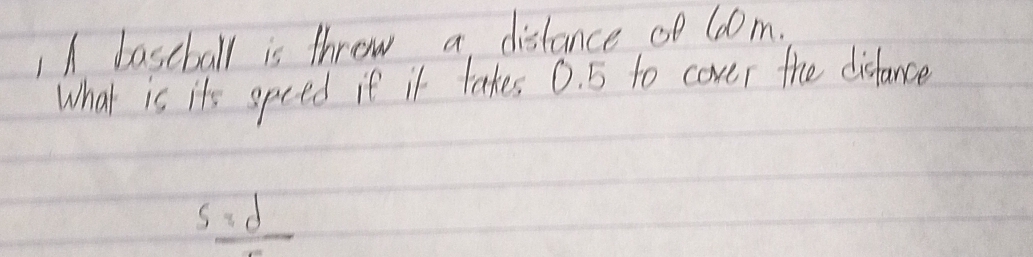 1 A baseball is throw a distance of 60m.
What is its speed if it takes 0.5 to cover the distance
s = d